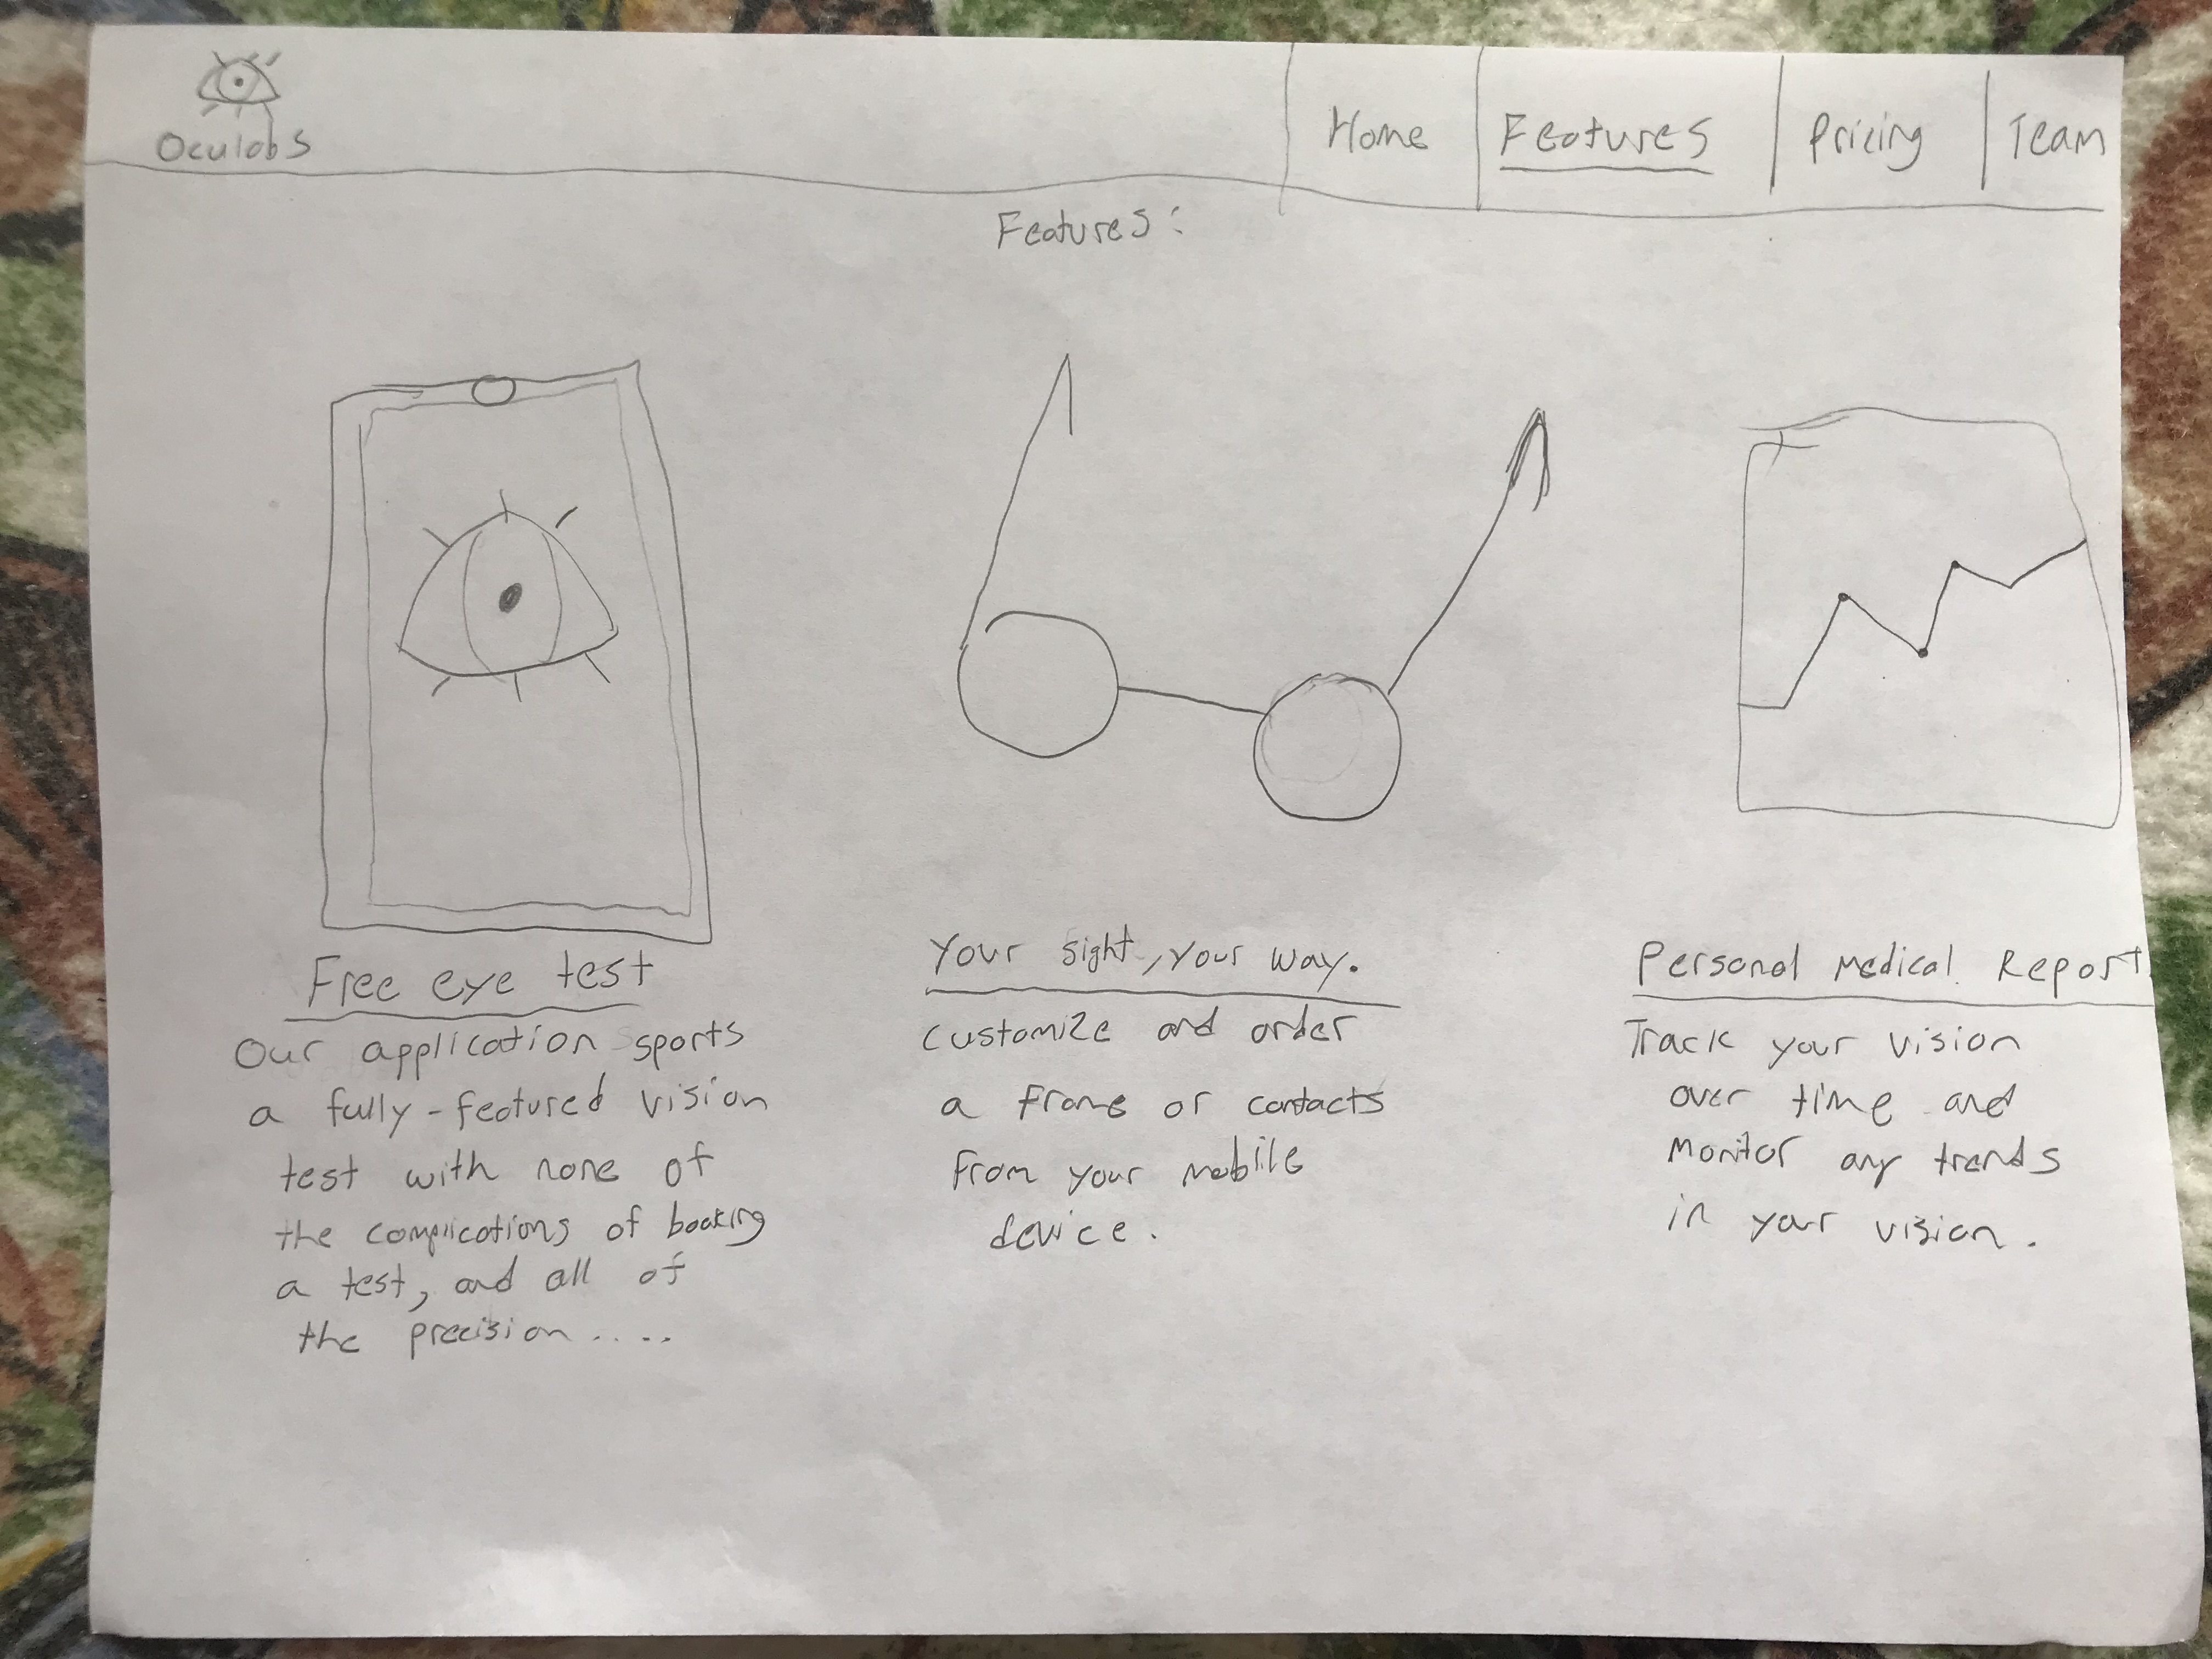 Oculabs
Home
Features
Pricing
Team
Features:
Free eye test
Our application sports
a fully-featured vision
test with none of
the complications of booking
a test, and all of
the precision.....
Your sight, Your way.
Customize and order
a frame or contacts
from your mobile
device.
Personal Medical Report
Track your vision
over time and
monitor any trends
in your vision.